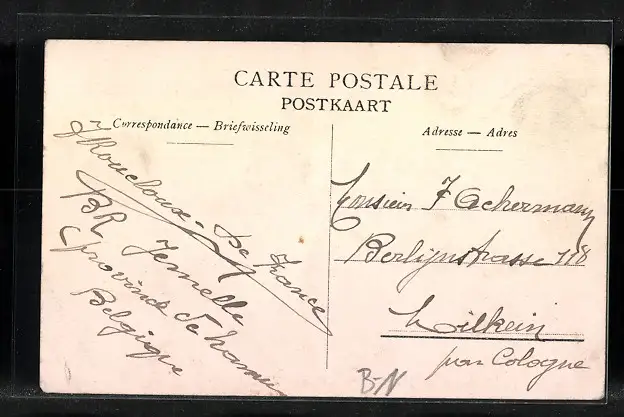 CARTE POSTALE
POSTKAART
Correspondance — Briefwisseling
Adresse — Adres
De France
BR Jemelle
(province de Namur
Belgique
Monsieur F Ackermann
Berlijnstrasse 118
par Cologne
B-N